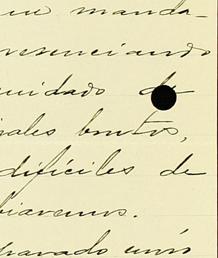 me manda-
resenciando
uidado de
rales brutos,
difíciles de
biaremos.
parado unís